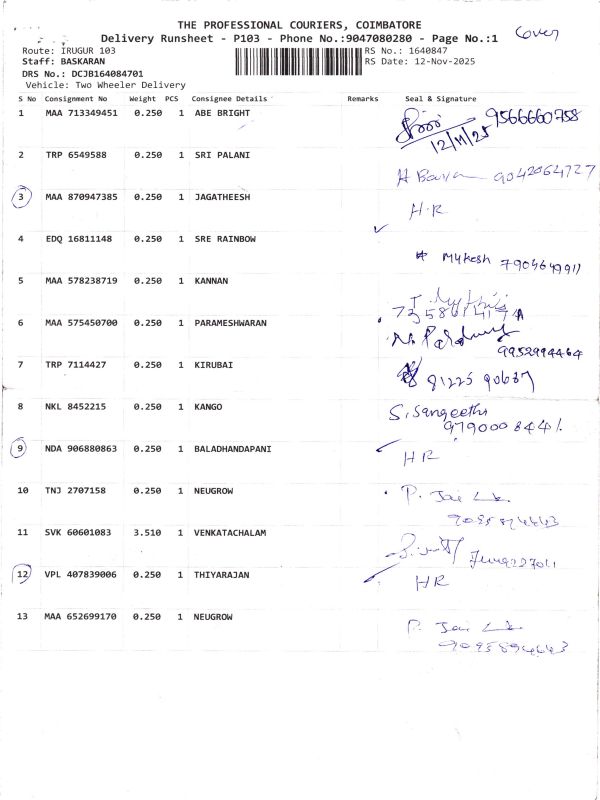 THE PROFESSIONAL COURIERS, COIMBATORE
Delivery Runsheet - P103 - Phone No.:9047080280 - Page No.:1
Cover
Route: IRUGUR 103
RS No.: 1640847
Staff: BASKARAN
RS Date: 12-Nov-2025
DRS No.: DCJB164084701
Vehicle: Two Wheeler Delivery
S No Consignment No Weight PCS Consignee Details Remarks Seal & Signature
1 MAA 713349451 0.250 1 ABE BRIGHT 9566660758
12/11/25
2 TRP 6549588 0.250 1 SRI PALANI
9042064727
3 MAA 870947385 0.250 1 JAGATHEESH H.R
4 EDQ 16811148 0.250 1 SRE RAINBOW
Mukesh 7904649911
5 MAA 578238719 0.250 1 KANNAN
6 MAA 575450700 0.250 1 PARAMESHWARAN
9952994464
7 TRP 7114427 0.250 1 KIRUBAI
81225 90687
8 NKL 8452215 0.250 1 KANGO S. Sangeetha
9 NDA 906880863 0.250 1 BALADHANDAPANI HR
10 TNJ 2707158 0.250 1 NEUGROW P. Jai
11 SVK 60601083 3.510 1 VENKATACHALAM
12 VPL 407839006 0.250 1 THIYARAJAN HR
13 MAA 652699170 0.250 1 NEUGROW P. Jai
9095894643